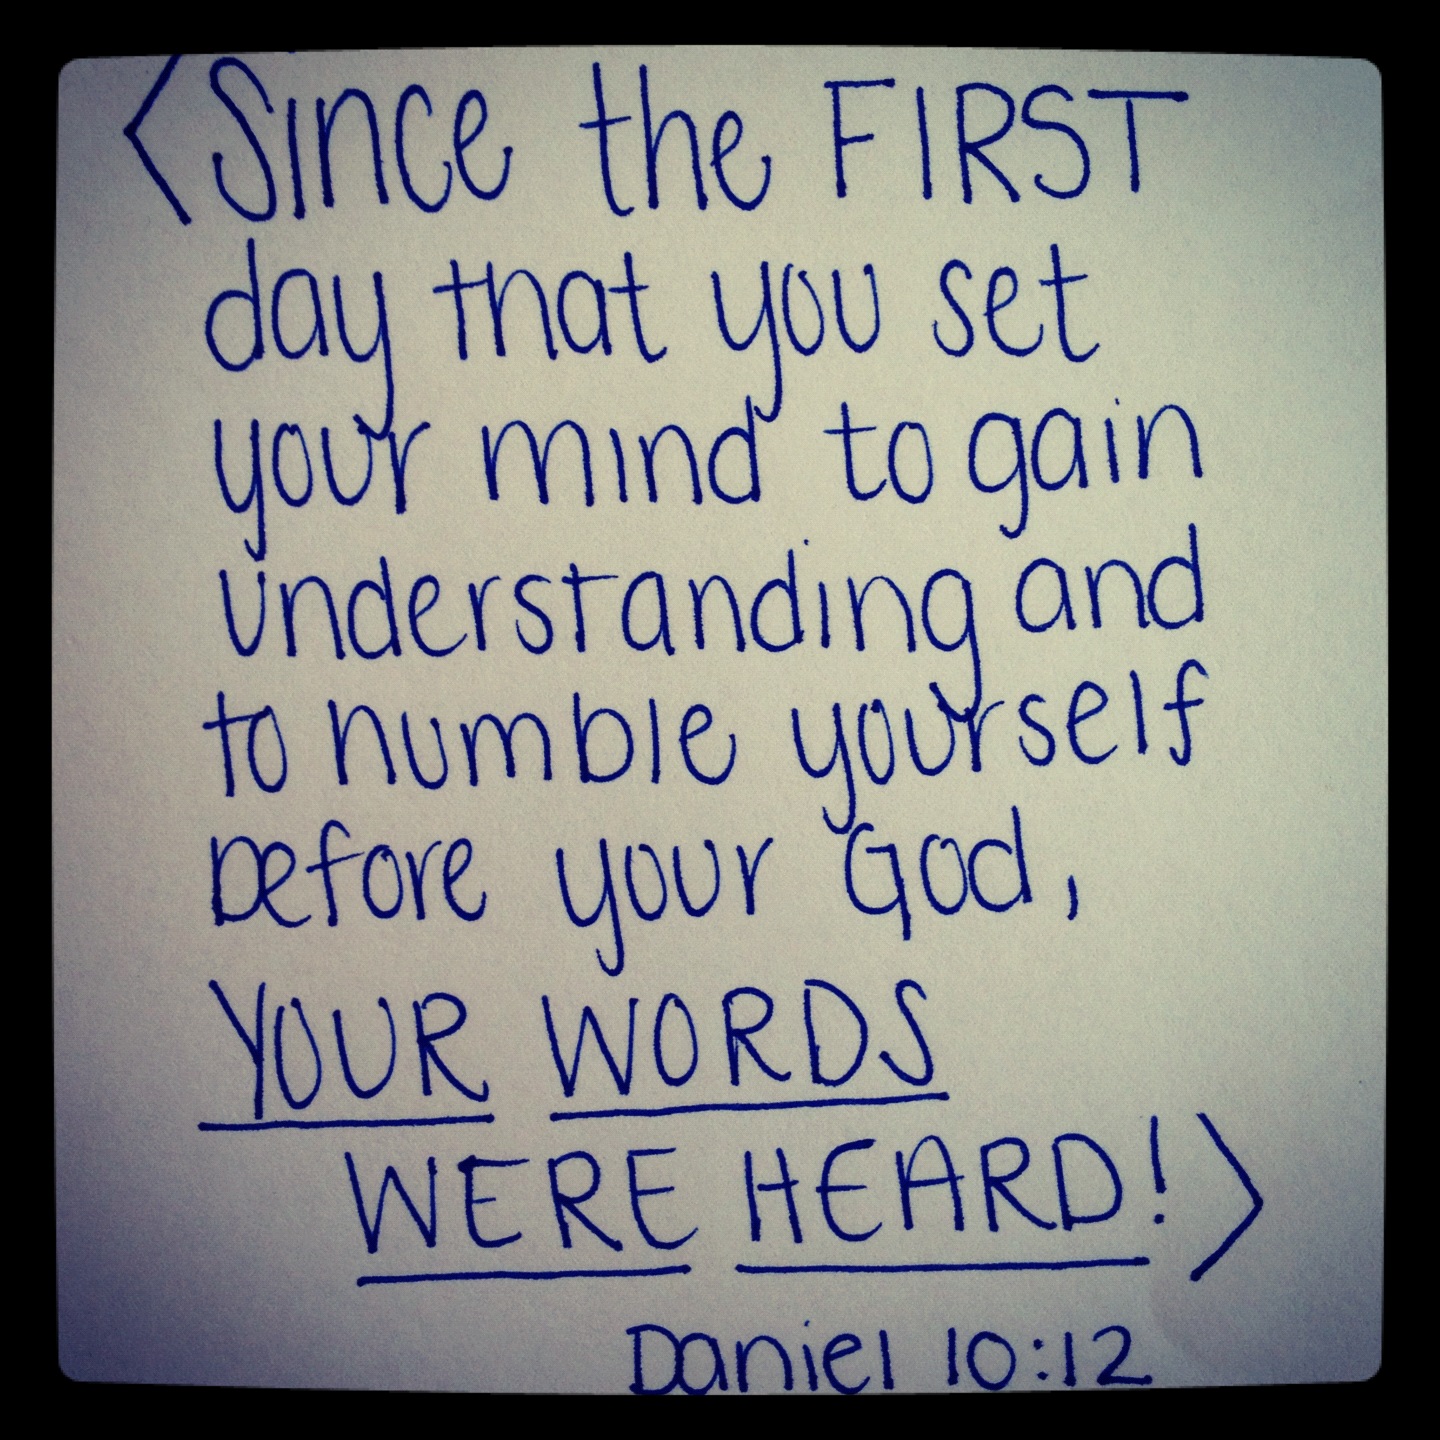 <Since the FIRST
day that you set
your mind to gain
understanding and
to humble yourself
before your God,
YOUR WORDS
WERE HEARD!>
Daniel 10:12